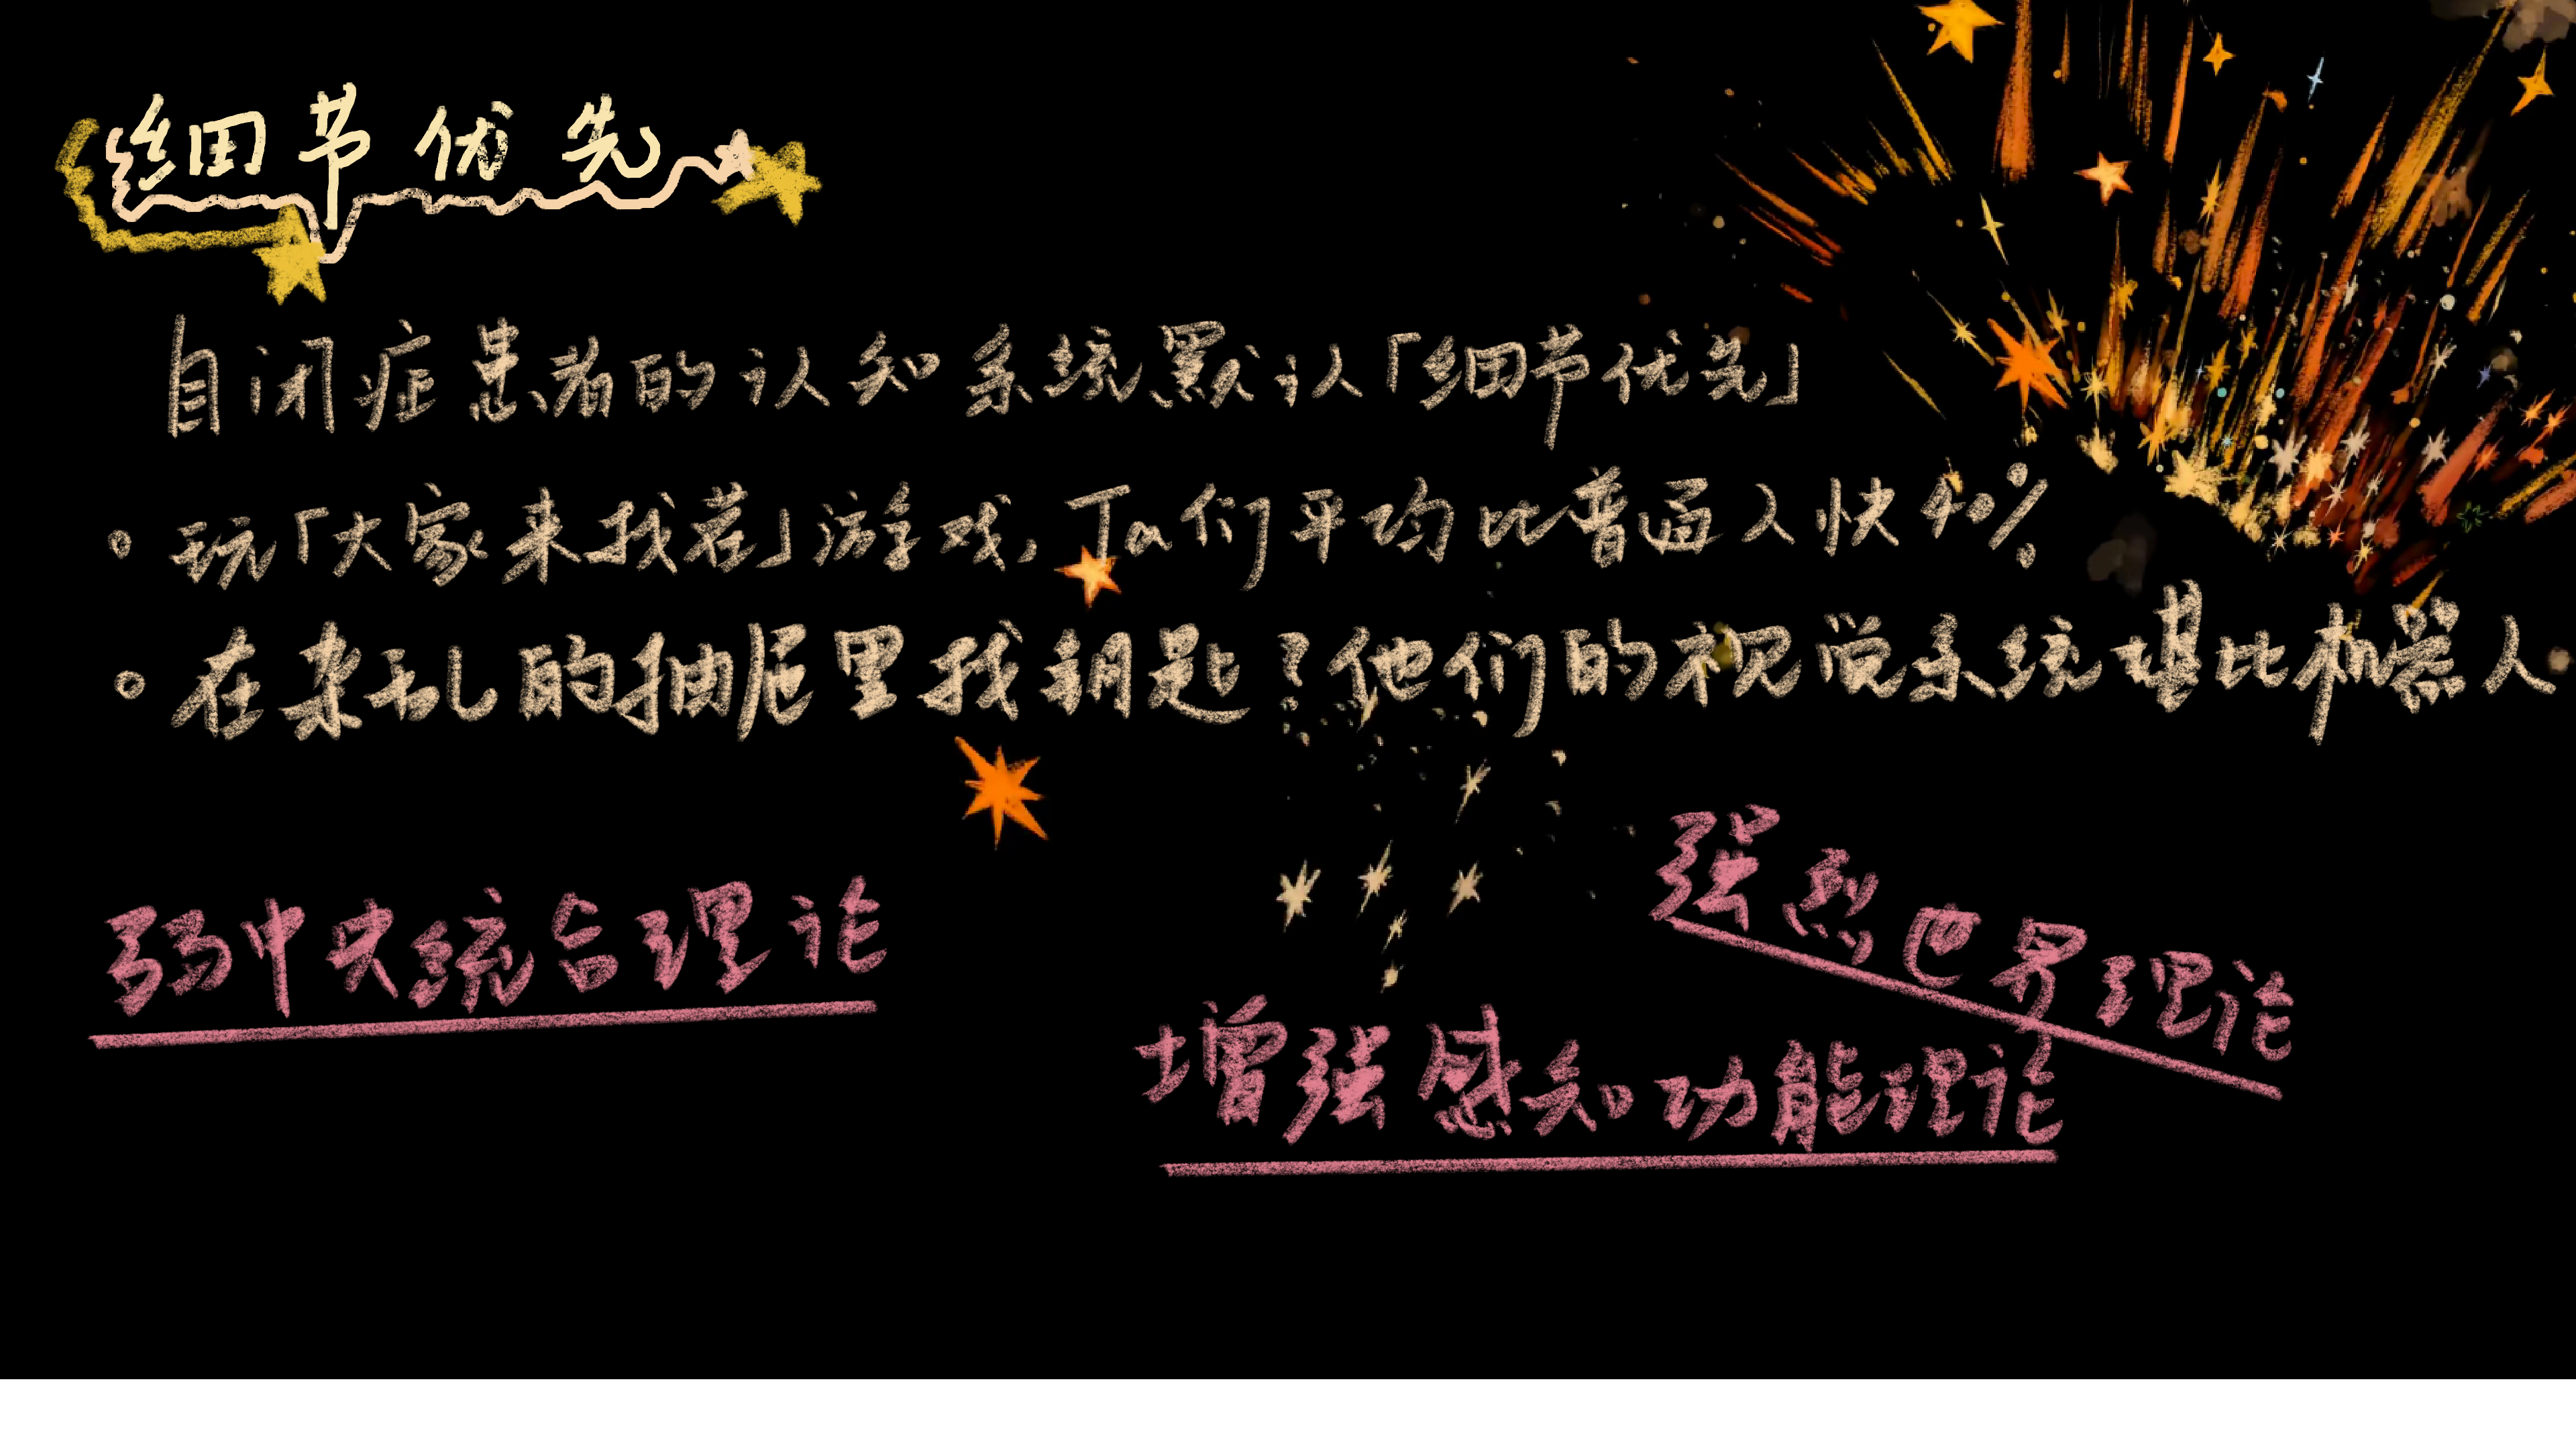 细节优先
自闭症患者的认知系统默认「细节优先」
。玩「大家来找茬」游戏，Ta们平均比普通人快40%
。在杂乱的抽屉里找钥匙？他们的视觉系统堪比机器人
弱中央统合理论
强烈世界理论
增强感知功能理论